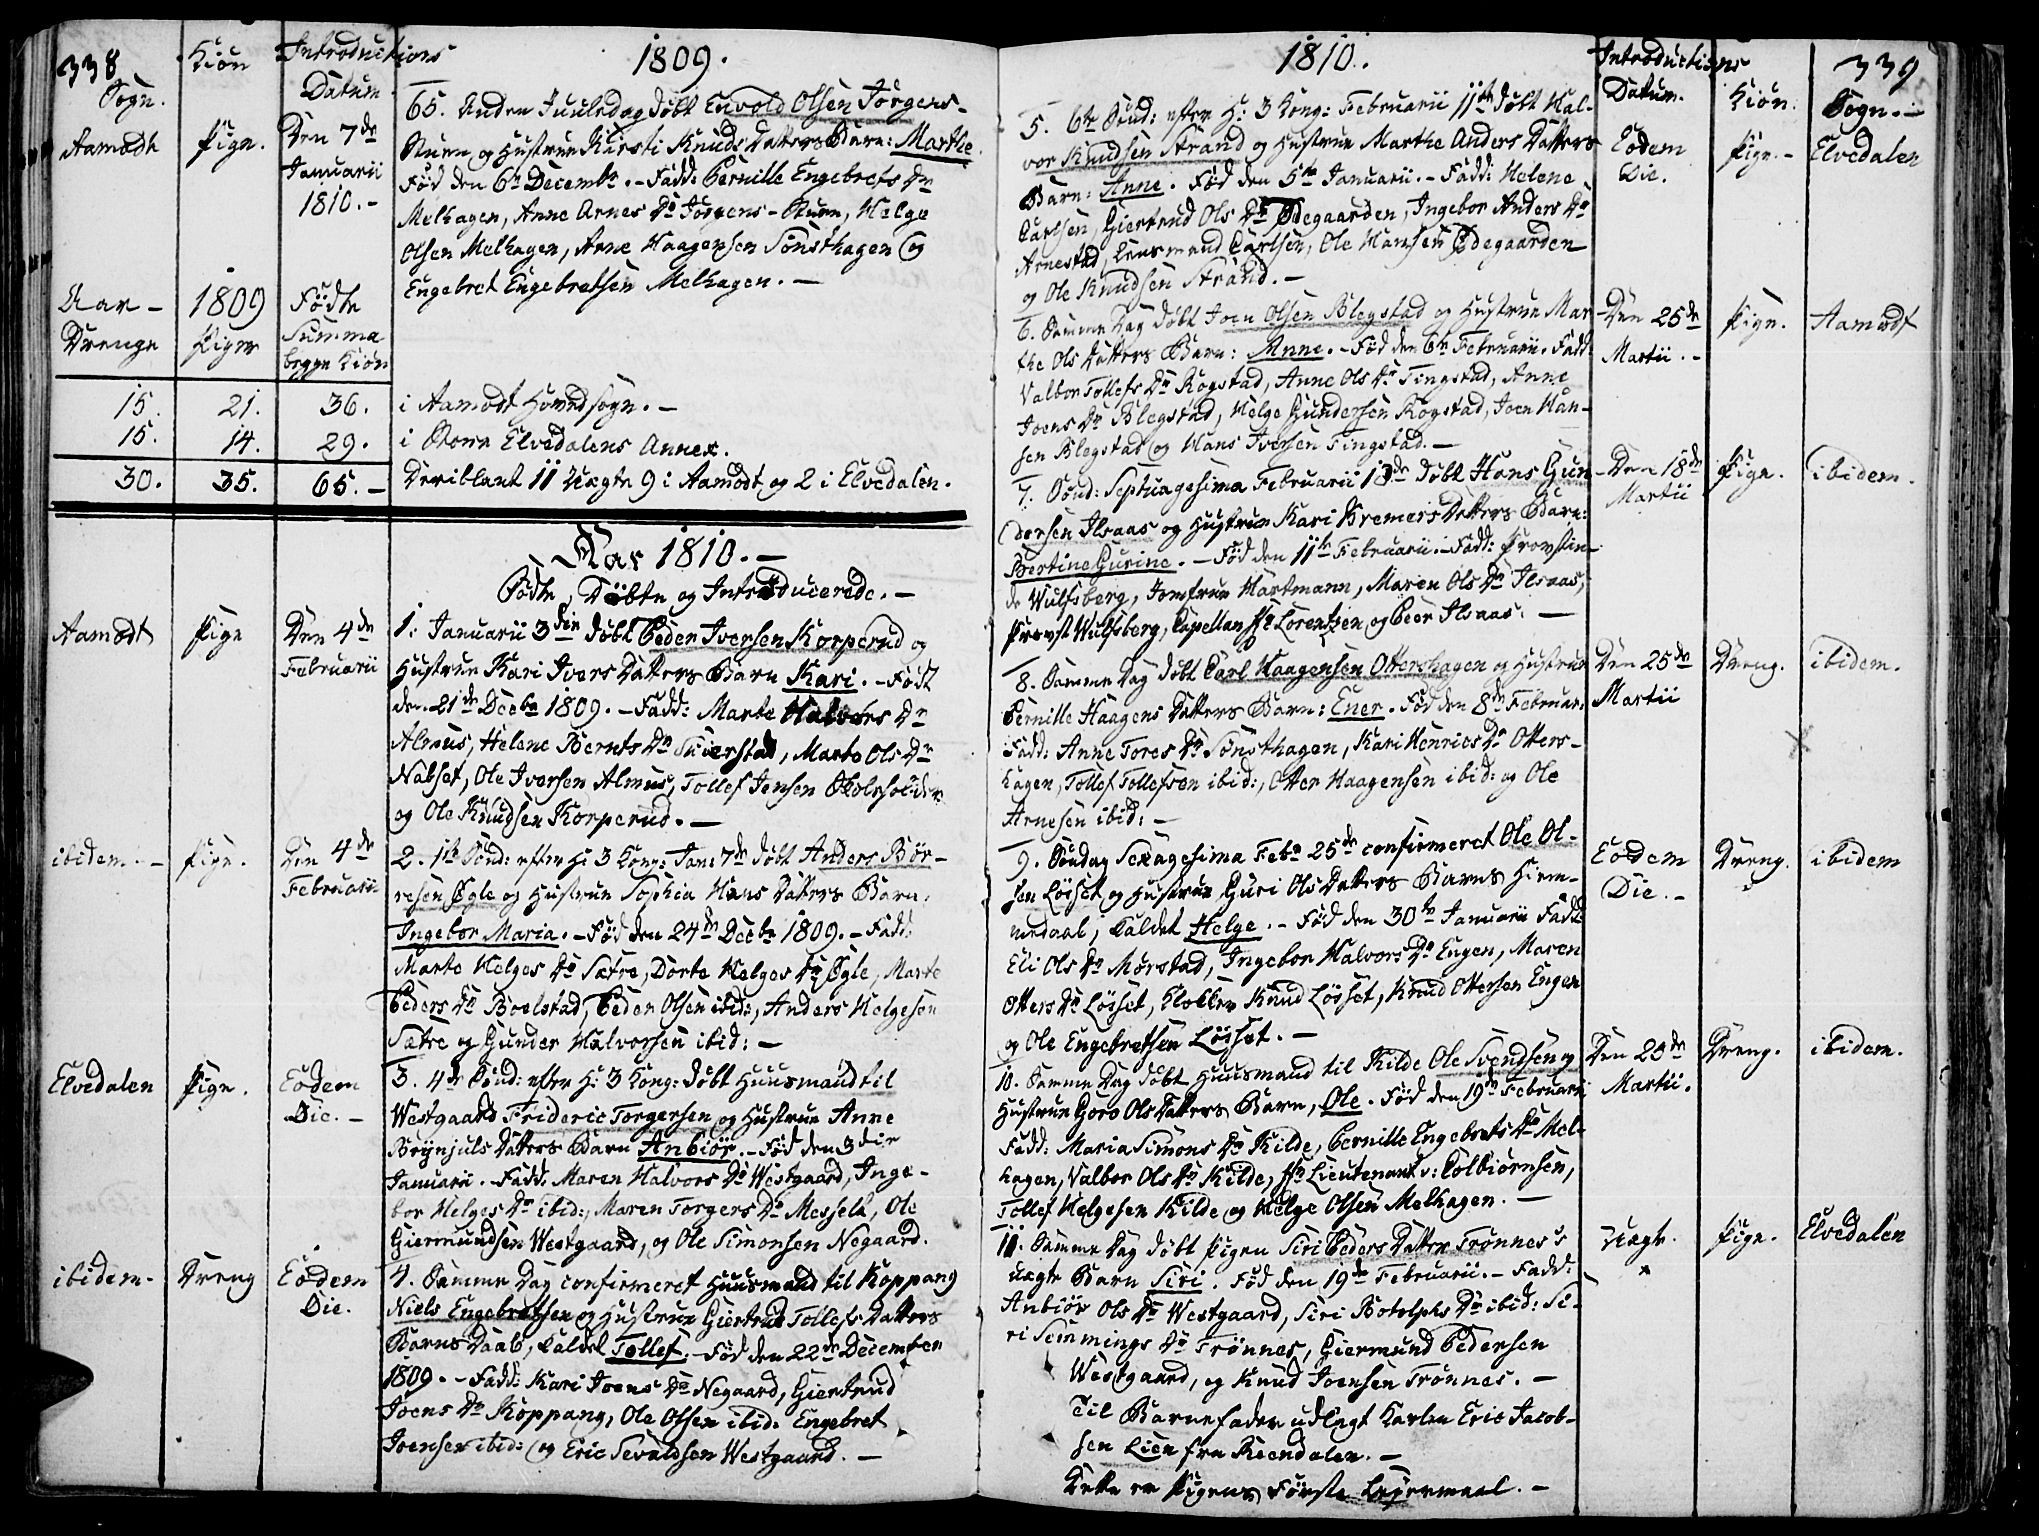 338
Sogn.
Kiön
Introductions
Datum
1809.
Aamodt
Pige.
Den 7de
Januarii
1810.-
65. Anden Juuledag döbt Envold Olsen Jörgens-
Stuen og Hustrue Kirsti Knuds Datters Barn: Marthe.
Föd den 6te Decembr. - Fadd: Pernille Engebrets Dr
Melhagen, Anne Arnes Dr Jörgens-Stuen, Helge
Olsen Melhagen, Arne Haagensen Sönsthagen og
Engebret Engebretsen Melhagen. -
Aar - 1809 Födte
Drenge Piger Summa
begge Kiön
15. 21. 36. i Aamodt Hovedsogn. -
15. 14. 29. i Store Elvedalens Annex.
30. 35. 65. - Deriblant 11 Uægte 9 i Aamodt og 2 i Elvedalen.
Aar 1810. -
Födte, Döbte og Introducerede. -
Aamodt
Pige
Den 4de
Februarii
1. Januarii 3die döbt Peder Iversen Korperud og
Hustrue Kari Ivers Datters Barn Kari. - Födt
den 21de Decbr 1809. - Fadd: Marte Halvors Dr
Almus, Helene Bernts Dr Skierstad, Marte Ols Dr
Nabset, Ole Iversen Almus, Tollef Jensen
og Ole Knudsen Korperud. -
ibidem. -
Pige.
Den 4de
Februarii
2. 1te Sönd: efter H: 3 Kong: Jan: 7de döbt Anders Bör-
resen Ögle og Hustrue Sophia Hans Datters Barn.
Ingebor Maria. - Föd den 24de Decbr 1809. - Fadd:
Marte Helges Dr Sætre, Dorte Helges Dr Ögle, Marte
Peders Dr Boelstad, Peder Olsen ibid:, Anders Helgesen
Sætre og Gunder Halvorsen ibid: -
Elvedalen
Pige.
Eodem
Die. -
3. 4de Sönd: efter H: 3 Kong: döbt Huusmand til
Westgaard Frideric Torgersen og Hustrue Anne
Brynjuls Datters Barn Anbiör. - Föd den 3die
Januarii. - Fadd: Maren Halvors Dr Westgaard, Inge-
bor Helges Dr ibid:, Maren Torgers Dr Messelt, Ole
Giermundsen Westgaard, og Ole Simonsen Negaard.
ibidem.
Dreng
Eodem
Die.
4. Samme Dag confirmeret Huusmand til Koppang
Niels Engebretsen og Hustrue Giertrud Tollefs Datters
Barns Daab, kaldet Tollef. - Föd den 22de December
1809. - Fadd: Kari Joens Dr Negaard, Giertrud
Joens Dr Koppang, Ole Olsen ibid: Engebret
Joensen ibid: og Eric Sevaldsen Westgaard. -
1810.
Introductions
Datum.
Kiön.
339
Sogn. -
5. 6te Sönd: efter H: 3 Kong: Februarii 11te döbt Hal-
vor Knudsen Strand og Hustrue Marthe Anders Datters
Barn: Anne. Föd den 5te Januarii. - Fadd: Helene
Carlsen, Giertrud Ols Dr Ödegaarden, Ingebor Anders Dr
Arnestad, Lensmand Carlsen, Ole Hansen Ödegaarden
og Ole Knudsen Strand. -
Eodem
Die.
Pige. -
Elvedalen
6. Samme Dag döbt Joen Olsen Blegstad og Hustrue Mar
the Ols Datters Barn: Anne. - Föd den 6te Februarii. Fadd:
Valbor Tollefs Dr Rogstad, Anne Ols Dr Tingstad, Anne
Joens Dr Blegstad, Helge Gundersen Rogstad, Joen Han-
sen Blegstad og Hans Iversen Tingstad. -
Den 25de
Martii. -
Pige.
Aamodt
7. Sönd: Septuagesima Februarii 18de döbt Hans Gun
dersen Ilsaas og Hustrue Kari Kremers Datters Barn:
Bertine Gurine. - Föd den 11te Februarii. - Fadd: Provstin-
de Wulfsberg, Jomfrue Hartmann, Maren Ols Dr Ilsaas,
Provst Wulfsberg, Capellan Hr Lorentzen og Peer Ilsaas. -
Den 18de
Martii
Pige.
ibidem.
8. Samme Dag döbt Carl Haagensen Ottershagen og Hustrue
Pernille Haagens Datters Barn: Ener. Föd den 8de Februar.
Fadd: Anne Tores Dr Sönsthagen, Kari Henrics Dr Otters-
hagen, Tollef Tollefsen ibid:, Otter Haagensen ibid: og Ole
Arnesen ibid: -
Den 25de
Martii
Dreng.
ibidem.
9. Söndag Sexagesima Febr 25de confirmeret Ole Ol-
sen Löset og Hustrue Guri Ols Datters Barns Hiem-
medaab, kaldet Helge. - Föd den 30te Januarii Fadd:
Eli Ols Dr Mörstad, Ingebor Halvors Dr Engen, Maren
Otters Dr Löset, Klokker Knud Löset, Knud Ottersen Engen
og Ole Engebretsen Löset. -
Eodem
Die. -
Dreng.
ibidem
10. Samme Dag döbt Huusmand til Kilde Ole Svendsen og
Hustrue Goro Ols Datters Barn, Ole. Föd den 19de Februarii
Fadd: Maria Simons Dr Kilde, Pernille Engebrets Dr Mel-
hagen, Valbor Ols Dr Kilde, Hr Lieutenant v: Colbiörnsen,
Tollef Helgesen Kilde og Helge Olsen Melhagen. -
Den 25de
Martii.
Dreng.
ibidem.
11. Samme Dag döbt Pigen Siri Peders Datter Trönnes's
uægte Barn Siri. Föd den 19de Februarii. - Fadd:
Anbiör Ols Dr Westgaard, Siri Botolphs Dr ibid: Si-
ri Simmings Dr Trönnes, Giermund Pedersen
Westgaard, og Knud Joensen Trönnes. -
Til Barnefader udlagt Karlen Eric Jacob-
sen Lien fra Reendalen. -
Dette er Pigens Förste Leiermaal. -
Uægte.
Pige.
Elvedalen